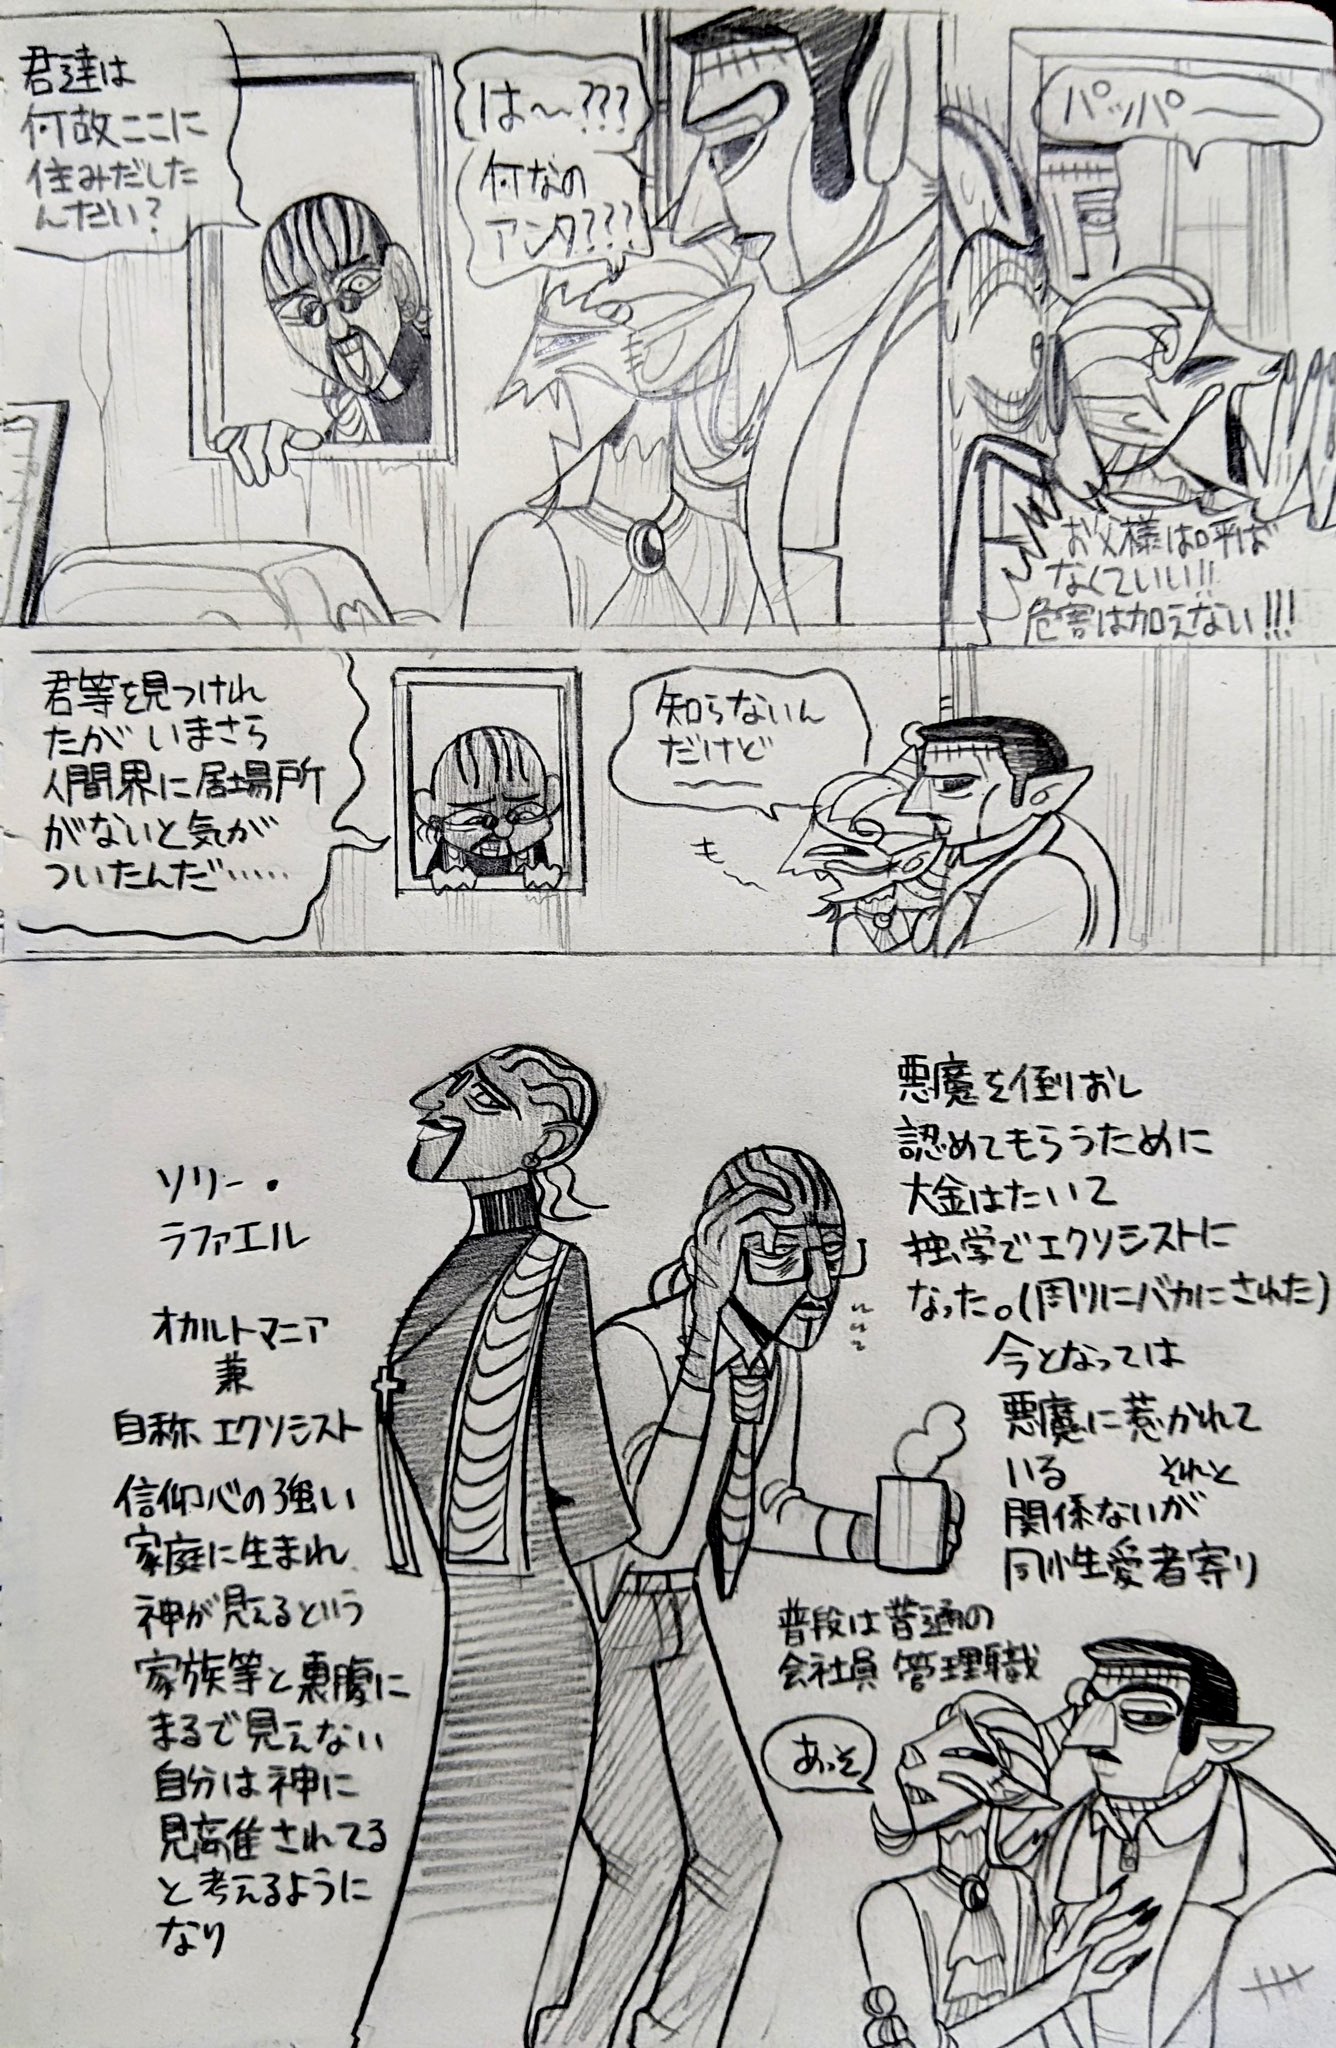 パッパー
お父様は呼ば
なくていい!!
危害は加えない!!!
は〜???
何なの
アンタ???
君達は
何故ここに
住みだした
んだい?
知らないん
だけど
も〜
君等を見つけれ
たが いまさら
人間界に居場所
がないと気が
ついたんだ……
ソリー・
ラファエル
オカルトマニア
兼
自称、エクソシスト
信仰心の強い
家庭に生まれ
神が見えるという
家族等と裏腹に
まるで見えない
自分は神に
見離されてる
と考えるように
なり
悪魔を倒しおし
認めてもらうために
大金はたいて
独学でエクソシストに
なった。(周りにバカにされた)
今となっては
悪魔に惹かれて
いる それと
関係ないが
同性愛者寄り
普段は普通の
会社員 管理職
あっそ